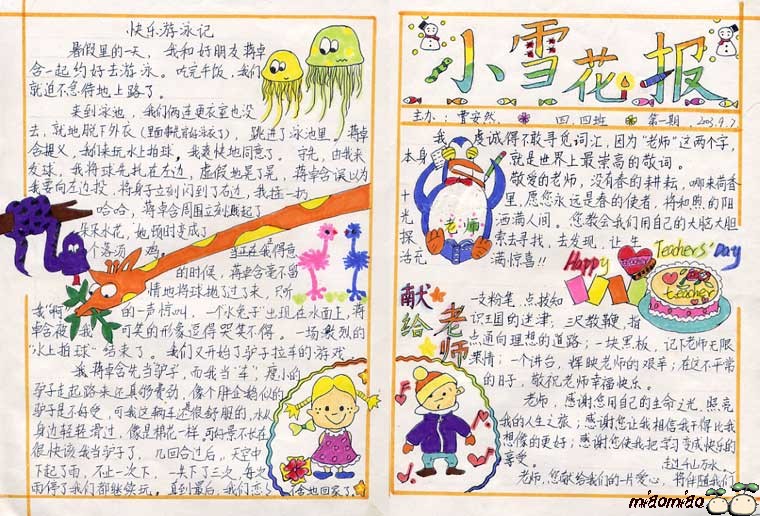 快乐游泳记
暑假里的一天，我和好朋友蒋卓
含一起约好去游泳。吃完午饭，我们
就迫不急待地上路了。
来到泳池，我们俩连更衣室也没
去，就地脱下外衣（里面事先穿泳衣了），跳进了泳池里。蒋卓
含提义，我们来玩水上拍球，我爽快地同意了。守先，由我来
发球，我将球先扎在左边，虚假地晃了晃，蒋卓含误以为
我要向左边投，将身子立刻闪到了右边，我猛一扔
哈哈，蒋卓含周围立刻溅起了
朵朵水花，她顿时变成了
个落汤鸡。当正在我得意
的时候，蒋卓含毫不留
情地将球抛了过了来，只听
我“啊”的一声惊叫，一个水兔子出现在水面上，蒋
卓含被我可笑的形象逗得哭笑不得。一场激烈的
“水上拍球”结束了。我们又开始了驴子拉车的游戏
我蒋卓含先当驴子，而我当“车”，瘦小的
驴子走起路来还真够费劲，像个胖企鹅似的
驴子是不好受，可我这辆车还很舒服的，水从
身边轻轻滑过，像是棉花一样。可好景不长在
很快该我当驴子了，几回合过后，天空中
下起了雨，不止一次下，一共下了三次，每次
雨停了我们都继续玩。直到最后，我们恋
舍地回家了。
小雪花报
主办：曹安然 四.四班 第一期 2003.9.7
我虔诚得不敢寻觅词汇，因为“老师”这两个字，
本身就是世界上最崇高的敬词。
敬爱的老师，没有春的耕耘，哪来荷香
十里，愿您永远是春的使者，将和煦的阳
光洒满人间。您教会我们用自己的大脑大胆
探索去寻找，去发现，让生
活充满惊喜!!
老师
Happy Teachers' Day
teacher
献给老师
一支粉笔，点拨知
识王国的迷津；三尺教鞭，指
点通向理想的道路；一块黑板，记下老师无限
深情；一个讲台，辉映老师的艰辛；在这不平常
的日子，敬祝老师幸福快乐。
老师，感谢您用自己的生命之光，照亮
我的人生之旅；感谢您让我相信我干得比我
想像的更好；感谢您使我把学习变成快乐的
享受。
老师，您献给我们的一片爱心，将伴随我们
赴千山万水。
miaomiao